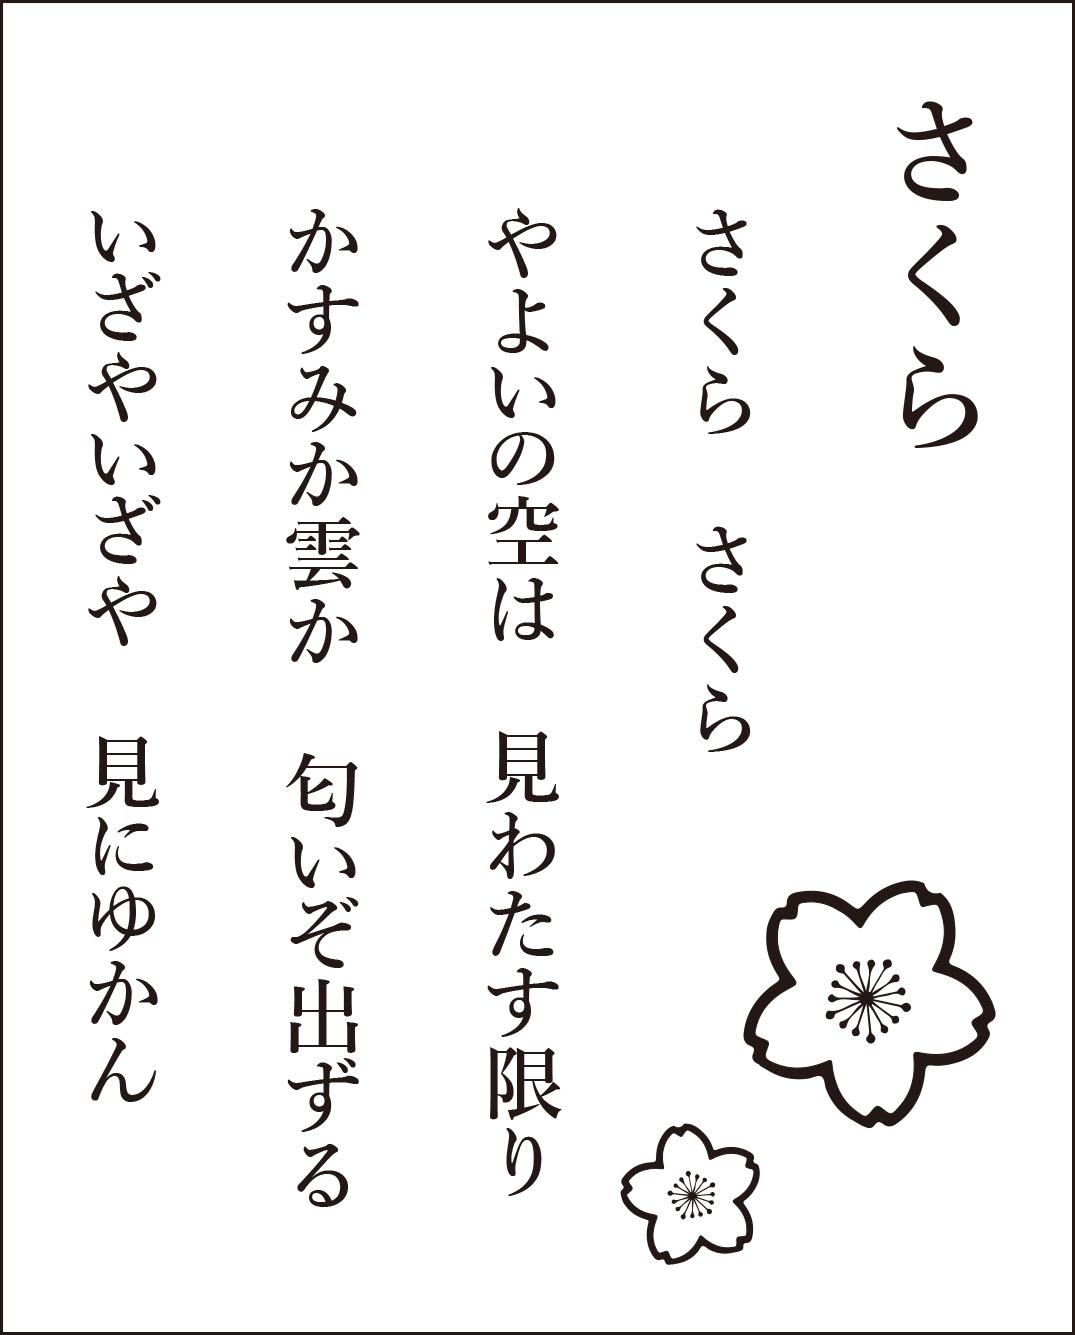 さくら
さくら　さくら
やよいの空は　見わたす限り
かすみか雲か　匂いぞ出ずる
いざやいざや　見にゆかん